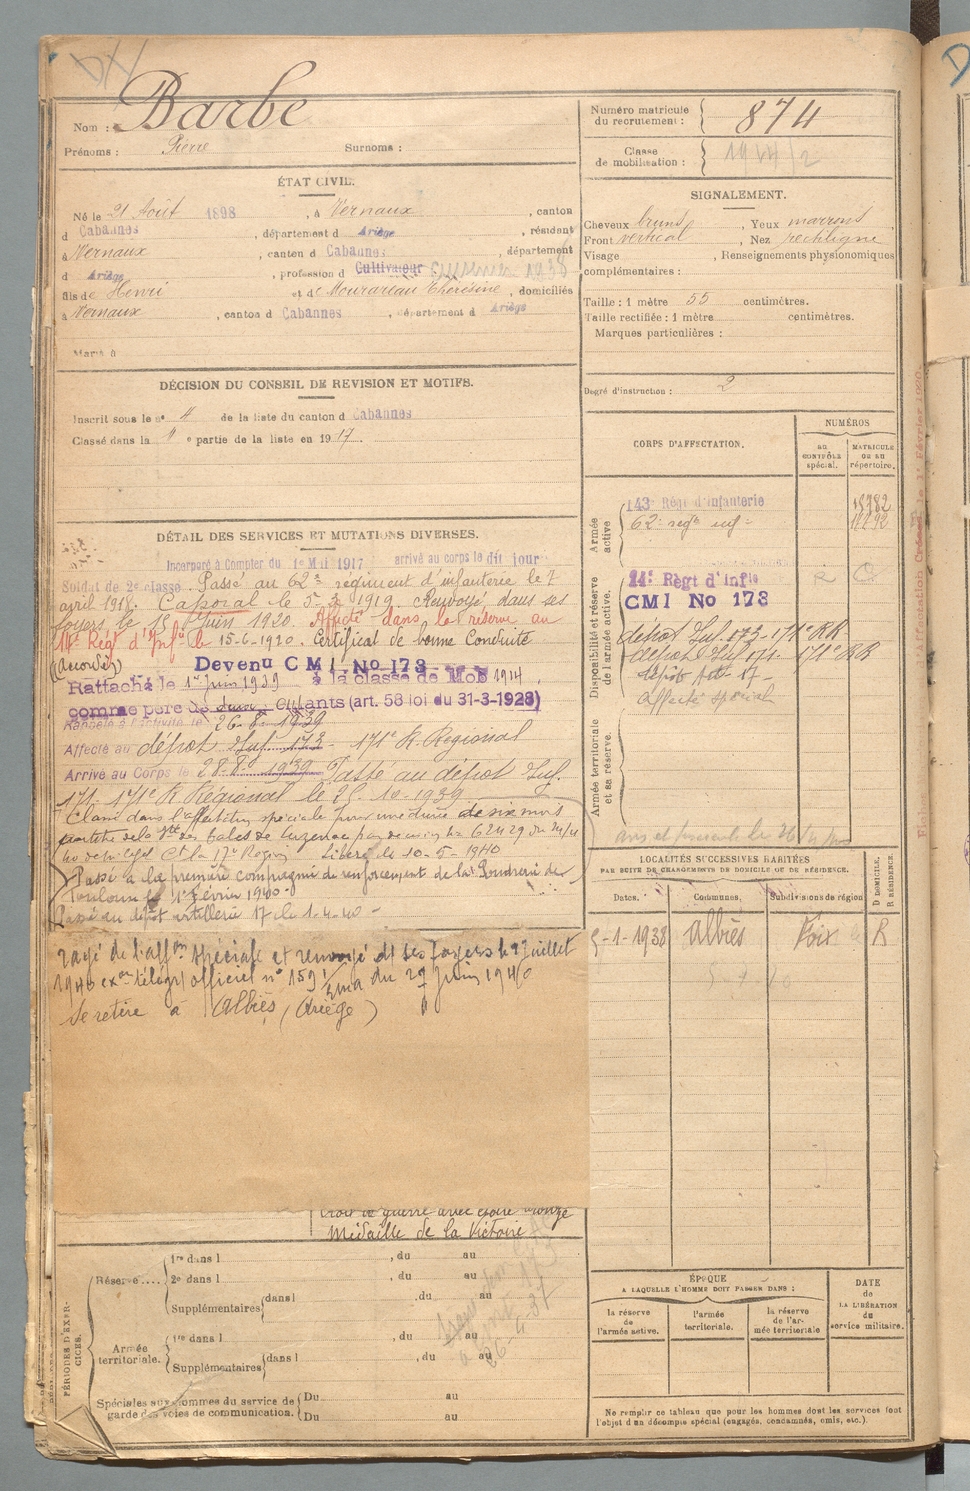 Nom : Barbe
Prénoms : Pierre Surnoms :
Numéro matricule du recrutement : 874
Classe de mobilisation : 1914/2
ÉTAT CIVIL.
Né le 21 Août 1898, à Vernaux, canton
d Cabannes, département d Ariège, résident
à Vernaux, canton d Cabannes, département
d Ariège, profession d Cultivateur 1938
fils de Henri et de Mourareau Thérésine, domiciliés
à Vernaux, canton d Cabannes, département d Ariège
Marié à
SIGNALEMENT.
Cheveux bruns, Yeux marrons
Front vertical, Nez rectiligne
Visage , Renseignements physionomiques
complémentaires :
Taille : 1 mètre 55 centimètres.
Taille rectifiée : 1 mètre centimètres.
Marques particulières :
Degré d'instruction : 2
DÉCISION DU CONSEIL DE REVISION ET MOTIFS.
Inscrit sous le no 4 de la liste du canton d Cabannes
Classé dans la " e partie de la liste en 1917.
CORPS D'AFFECTATION.
NUMÉROS
au contrôle spécial.
MATRICULE ou au répertoire.
Armée active
143e Régt d'Infanterie
62e regt inf
Disponibilité et réserve de l'armée active.
14e Règt d'Infie
CMI No 173
dépôt Inf. 173 - 171e RR
dépôt Inf 171 - 171e RR
dépôt Art. 17 -
Affecté spécial
Armée territoriale et sa réserve.
DÉTAIL DES SERVICES ET MUTATIONS DIVERSES.
Incorporé à Compter du 1er Mai 1917 arrivé au corps le dit jour
Soldat de 2e classe. Passé au 62e regiment d'infanterie le 7
avril 1918. Caporal le 1919. Renvoyé dans ses
foyers le 15 Juin 1920. Affecté dans la réserve au
14e Régt d'Infie le 15-6-1920. Certificat de bonne Conduite
(accordé)
Devenu C M I No 173
Rattaché le 1er Juin 1939 à la classe de Mob 1914
comme père de deux enfants (art. 58 loi du 31-3-1928)
Rappelé à l'activité le 26-8-1939
Affecté au dépôt Inf. 173 - 171e R. Régional
Arrivé au Corps le 28-8-1939 Passé au dépôt Inf.
171 - 171e R Régional le 25-10-1939
Classé dans l'affectation spéciale pour une durée de six mois
de Luzenac
17e Région Libéré le 10-5-1940
Passé à la première compagnie de renforcement de la Poudrerie de
Toulouse le 1er Février 1940 -
Passé au dépôt artillerie 17 le 1-4-40 -
rayé de l'affon spéciale et renvoyé ds ses foyers le 9 Juillet
1940 exon télégr officiel no 1591 du 29 Juin 1940
Se retire à Albiès (Ariège)
Croix de guerre avec étoile bronze
Médaille de la Victoire
LOCALITÉS SUCCESSIVES HABITÉES
PAR SUITE DE CHANGEMENTS DE DOMICILE OU DE RÉSIDENCE.
Dates. Communes. Subdivisions de région
D DOMICILE, R RÉSIDENCE.
5-1-1938 Albiès Foix R
ÉPOQUE
A LAQUELLE L'HOMME DOIT PASSER DANS :
la réserve de l'armée active.
l'armée territoriale.
la réserve de l'armée territoriale
DATE de LA LIBÉRATION du service militaire.
PÉRIODES D'EXERCICES.
Réserve .... 1re dans l , du au
2e dans l , du au
Supplémentaires dans l , du au
Armée territoriale. 1re dans l , du au
Supplémentaires dans l , du au
Spéciales aux hommes du service de garde des voies de communication. Du au
Du au
Ne remplir ce tableau que pour les hommes dont les services font
l'objet d'un décompte spécial (engagés, condamnés, omis, etc.).